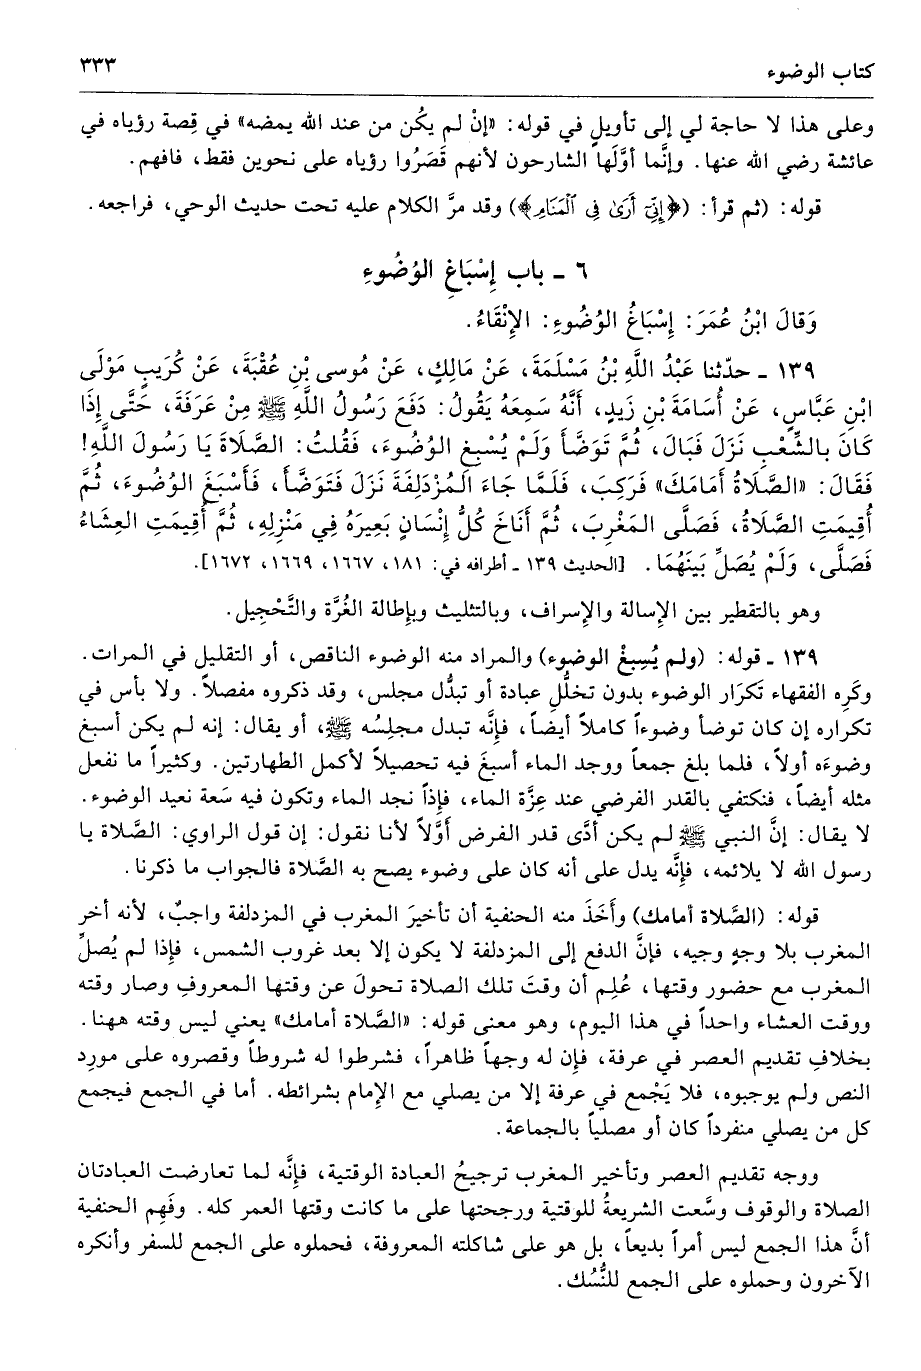 كتاب الوضوء ٣٣٣
وعلى هذا لا حاجة لي إلى تأويلٍ في قوله: «إنْ لم يكُن من عند الله يمضه» في قِصة رؤياه في
عائشة رضي الله عنها. وإنَّما أوَّلَها الشارحون لأنهم قَصَرُوا رؤياه على نحوين فقط، فافهم.
قوله: (ثم قرأ: (﴿إِنِّيٓ أَرَىٰ فِي ٱلْمَنَامِ﴾) وقد مرَّ الكلام عليه تحت حديث الوحي، فراجعه.
٦ - باب إِسْبَاغِ الوُضُوءِ
وَقالَ ابْنُ عُمَرَ: إِسْبَاغُ الوُضُوءِ: الإِنْقَاءُ.
١٣٩ - حدّثنا عَبْدُ اللَّهِ بْنُ مَسْلَمَةَ، عَنْ مَالِكٍ، عَنْ مُوسى بْنِ عُقْبَةَ، عَنْ كُرَيبٍ مَوْلَى
ابْنِ عَبَّاسٍ، عَنْ أُسَامَةَ بْنِ زَيدٍ، أَنَّهُ سَمِعَهُ يَقُولُ: دَفَعَ رَسُولُ اللَّهِ ﷺ مِنْ عَرَفَةَ، حَتَّى إِذَا
كَانَ بالشِّعْبِ نَزَلَ فَبَالَ، ثُمَّ تَوَضَّأَ وَلَمْ يُسْبِغِ الوُضُوءَ، فَقُلتُ: الصَّلاَةَ يَا رَسُولَ اللَّهِ!
فَقَالَ: «الصَّلاَةُ أَمَامَكَ» فَرَكِبَ، فَلَمَّا جَاءَ المُزْدَلِفَةَ نَزَلَ فَتَوَضَّأَ، فَأَسْبَغَ الوُضُوءَ، ثُمَّ
أُقِيمَتِ الصَّلاَةُ، فَصَلَّى المَغْرِبَ، ثُمَّ أَنَاخَ كُلُّ إِنْسَانٍ بَعِيرَهُ فِي مَنْزِلِهِ، ثُمَّ أُقِيمَتِ العِشَاءُ
فَصَلَّى، وَلَمْ يُصَلِّ بَينَهُمَا. [الحديث ١٣٩ - أطرافه في: ١٨١، ١٦٦٧، ١٦٦٩، ١٦٧٢].
وهو بالتقطير بين الإِسالة والإِسراف، وبالتثليث وبإِطالة الغُرَّة والتَّحْجِيل.
١٣٩ - قوله: (ولم يُسِبغْ الوضوء) والمراد منه الوضوء الناقص، أو التقليل في المرات.
وكَرِه الفقهاء تَكرَار الوضوء بدون تخلُّلِ عبادة أو تبدُّل مجلس، وقد ذكروه مفصلاً. ولا بأس في
تكراره إن كان توضأ وضوءاً كاملاً أيضاً، فإِنَّه تبدل مجلِسُه ﷺ، أو يقال: إنه لم يكن أسبغ
وضوءَه أولاً، فلما بلغ جمعاً ووجد الماء أسبغَ فيه تحصيلاً لأكمل الطهارتين. وكثيراً ما نفعل
مثله أيضاً، فنكتفي بالقدر الفرضي عند عِزَّة الماء، فإِذاً نجد الماء وتكون فيه سَعة نعيد الوضوء.
لا يقال: إنَّ النبي ﷺ لم يكن أدَّى قدر الفرض أوَّلاً لأنا نقول: إن قول الراوي: الصَّلاة يا
رسول الله لا يلائمه، فإِنَّه يدل على أنه كان على وضوء يصح به الصَّلاة فالجواب ما ذكرنا.
قوله: (الصَّلاة أمامك) وأَخَذَ منه الحنفية أن تأخيرَ المغرب في المزدلفة واجبٌ، لأنه أخر
المغرب بلا وجهٍ وجيه، فإنَّ الدفع إلى المزدلفة لا يكون إلا بعد غروب الشمس، فإِذا لم يُصلِّ
المغرب مع حضور وقتها، عُلِم أن وقتَ تلك الصلاة تحولَ عن وقتها المعروفِ وصار وقته
ووقت العشاء واحداً في هذا اليوم، وهو معنى قوله: «الصَّلاة أمامك» يعني ليس وقته ههنا.
بخلافِ تقديم العصر في عرفة، فإن له وجهاً ظاهراً، فشرطوا له شروطاً وقصروه على مورِد
النص ولم يوجبوه، فلا يَجْمع في عرفة إلا من يصلي مع الإِمام بشرائطه. أما في الجمع فيجمع
كل من يصلي منفرداً كان أو مصلياً بالجماعة.
ووجه تقديم العصر وتأخير المغرب ترجيحُ العبادة الوقتية، فإِنَّه لما تعارضت العبادتان
الصلاة والوقوف وسَّعت الشريعةُ للوقتية ورجحتها على ما كانت وقتها العمر كله. وفَهِم الحنفية
أنَّ هذا الجمع ليس أمراً بديعاً، بل هو على شاكلته المعروفة، فحملوه على الجمع للسفر وأنكره
الآخرون وحملوه على الجمع للنُّسُك.